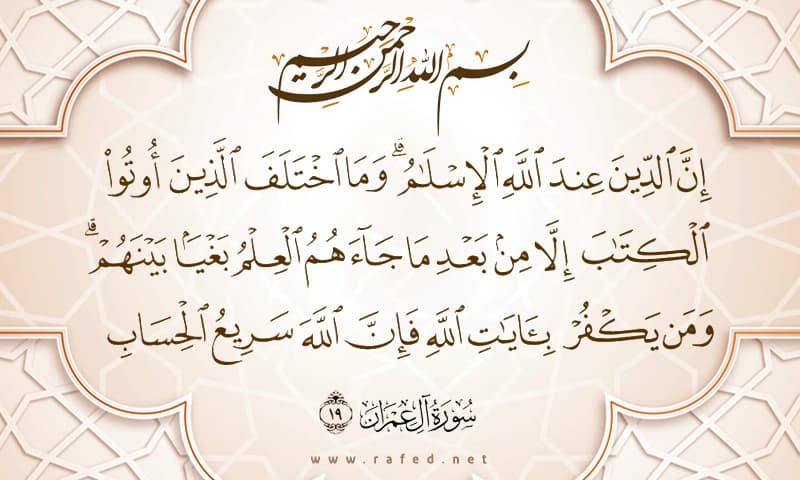 بِسْمِ اللهِ الرَّحْمنِ الرَّحِيمِ
إِنَّ ٱلدِّينَ عِندَ ٱللَّهِ ٱلْإِسْلَـٰمُ ۗ وَمَا ٱخْتَلَفَ ٱلَّذِينَ أُوتُوا۟
ٱلْكِتَـٰبَ إِلَّا مِنۢ بَعْدِ مَا جَآءَهُمُ ٱلْعِلْمُ بَغْيَۢا بَيْنَهُمْ ۗ
وَمَن يَكْفُرْ بِـَٔايَـٰتِ ٱللَّهِ فَإِنَّ ٱللَّهَ سَرِيعُ ٱلْحِسَابِ
سُورَةُ آلِ عِمْرَان ١٩
www.rafed.net